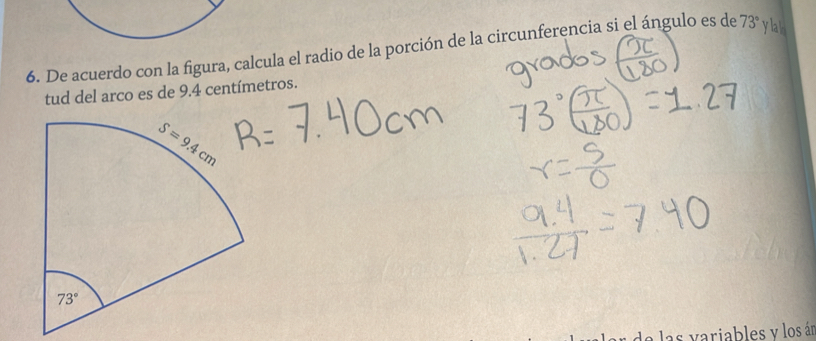 6. De acuerdo con la figura, calcula el radio de la porción de la circunferencia si el ángulo es de 73° y la
tud del arco es de 9.4 centímetros.
grados (π/180)
S = 9.4 cm
R= 7.40cm
73° (π/180) = 1.27
r = S/θ
9.4/1.27 = 7.40
73°
de las variables y los án